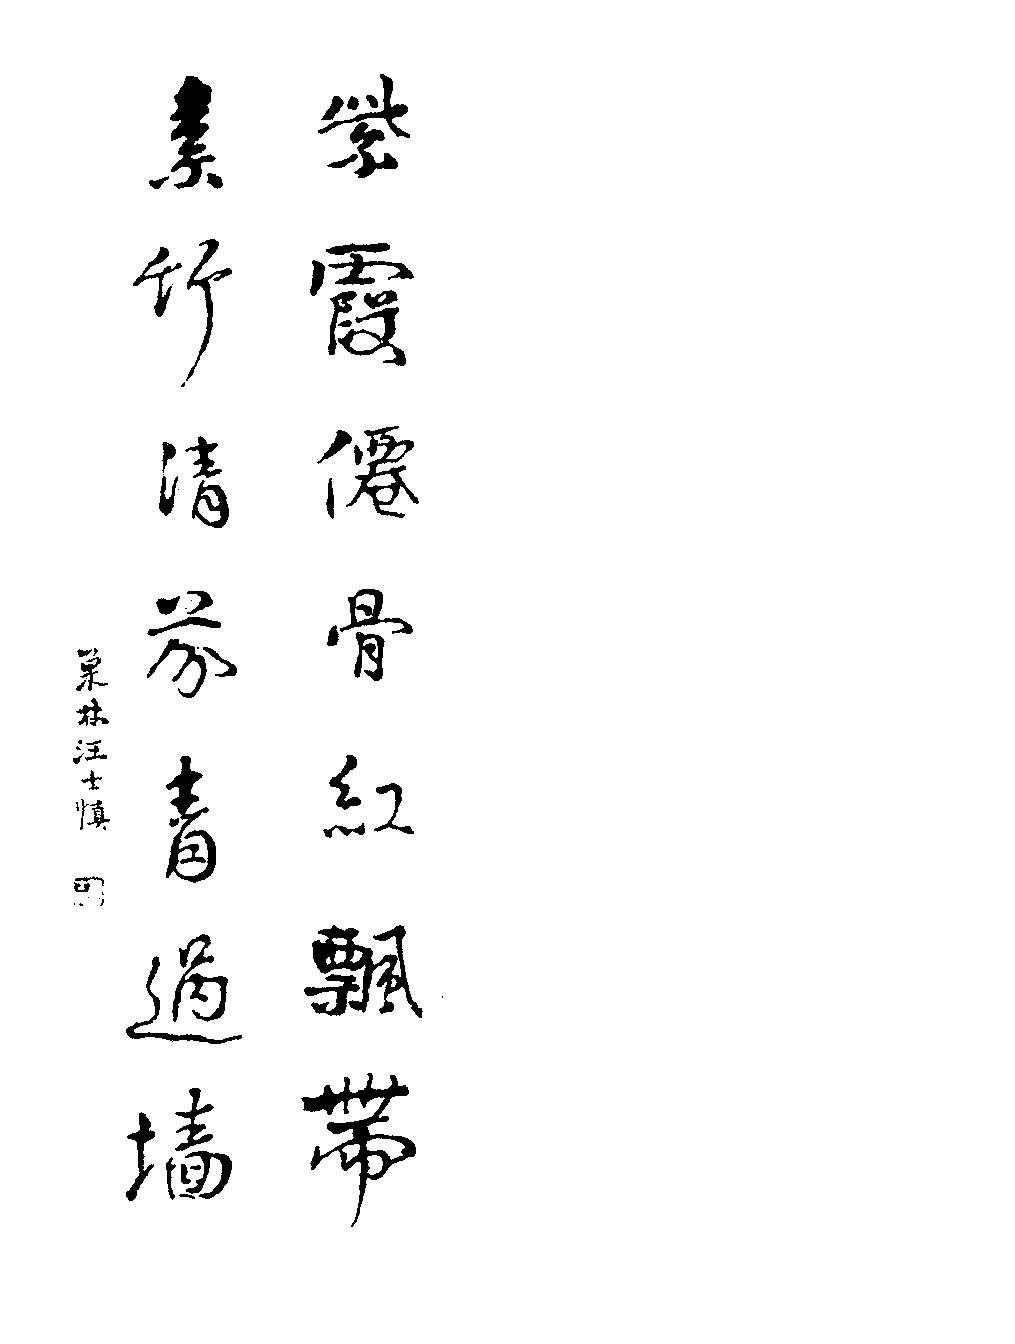 紫霞僊骨紅飄帶
素竹清芬青過墙
巢林汪士慎